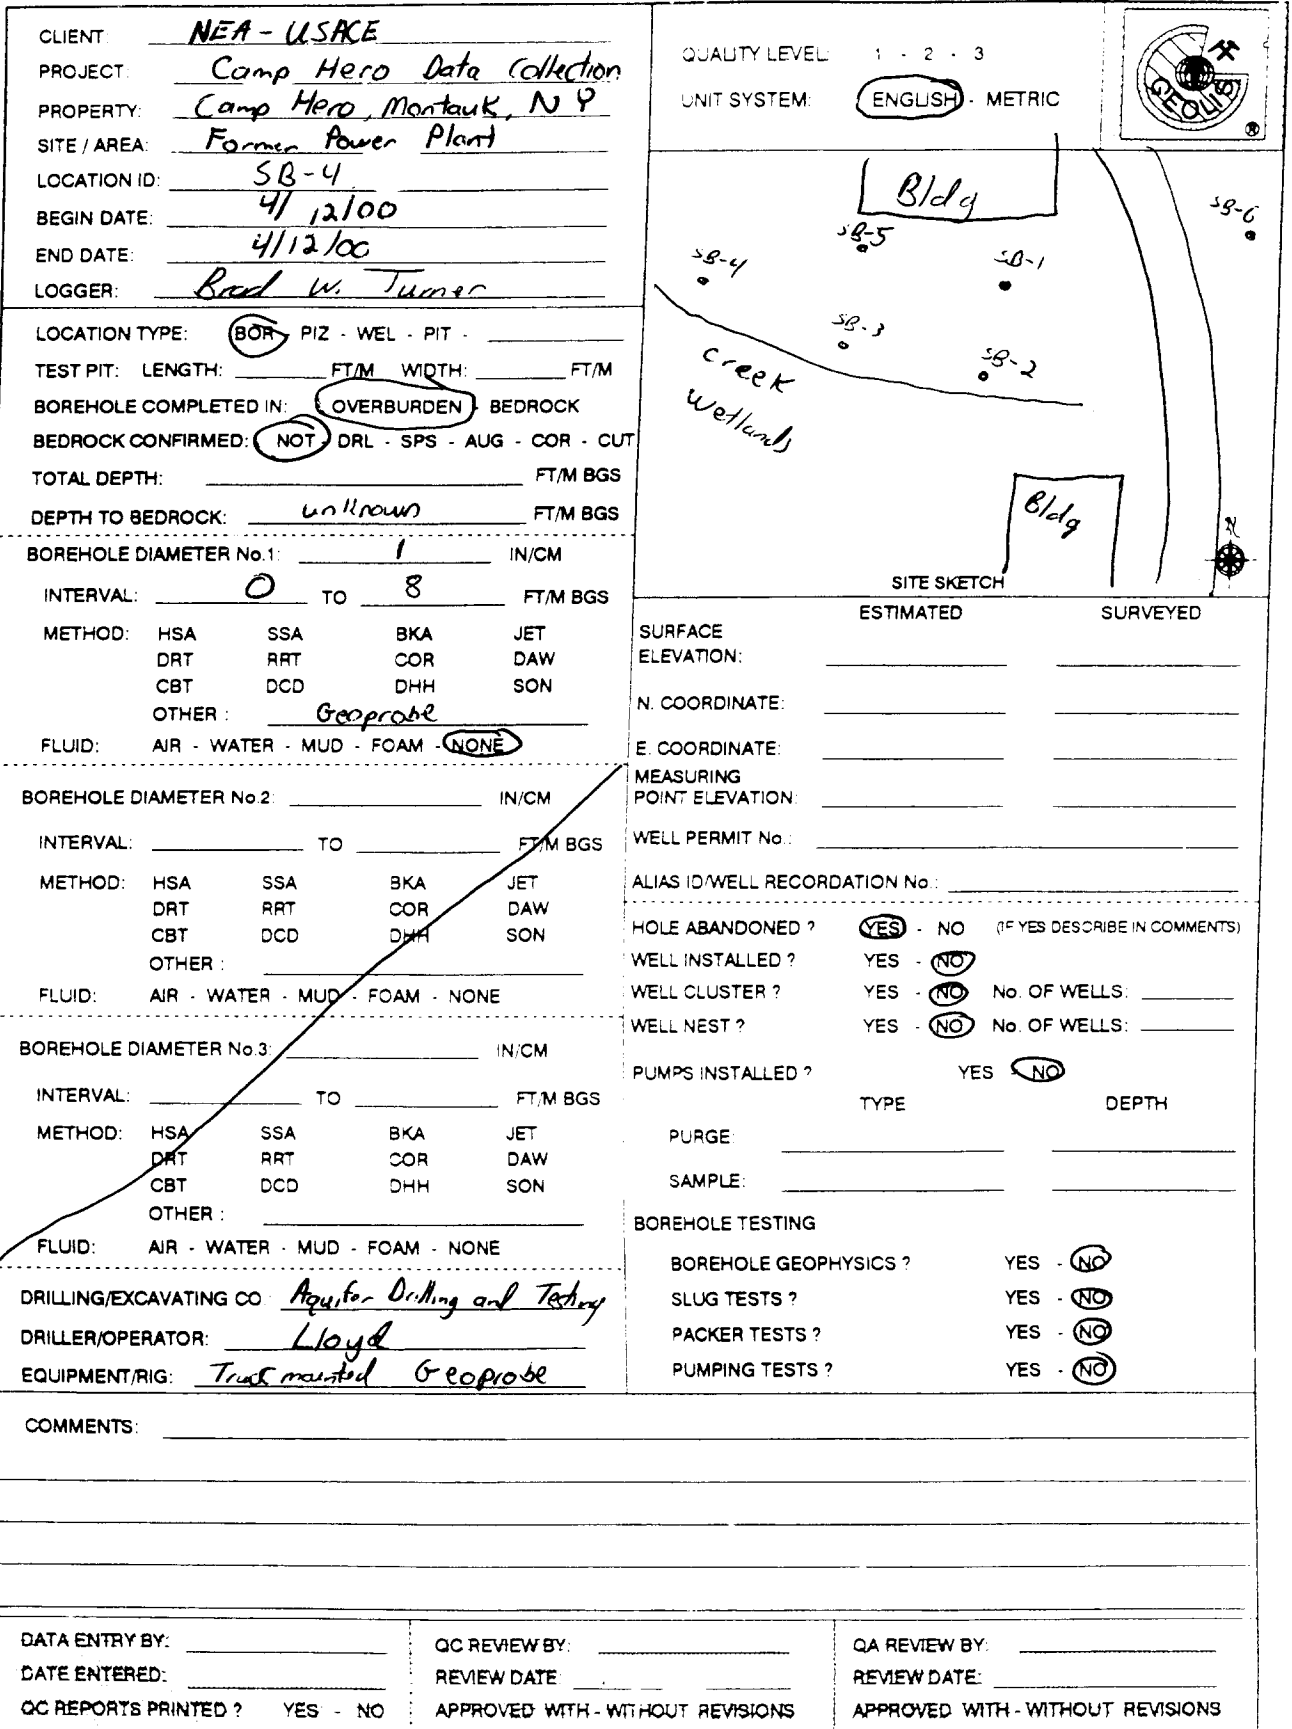 CLIENT: NEA - USACE
PROJECT: Camp Hero Data Collection
PROPERTY: Camp Hero, Montauk, NY
SITE / AREA: Former Power Plant
LOCATION ID: SB-4
BEGIN DATE: 4/12/00
END DATE: 4/12/00
LOGGER: Brad W. Turner
QUALITY LEVEL: 1 - 2 - 3
UNIT SYSTEM: ENGLISH - METRIC
GEOLIS
®
Bldg
SB-6
SB-5
SB-4
SB-1
SB-3
SB-2
creek
wetlands
Bldg
N
SITE SKETCH
LOCATION TYPE: BOR - PIZ - WEL - PIT -
TEST PIT: LENGTH: FT/M WIDTH: FT/M
BOREHOLE COMPLETED IN: OVERBURDEN - BEDROCK
BEDROCK CONFIRMED: NOT - DRL - SPS - AUG - COR - CUT
TOTAL DEPTH: FT/M BGS
DEPTH TO BEDROCK: unknown FT/M BGS
BOREHOLE DIAMETER No.1: 1 IN/CM
INTERVAL: 0 TO 8 FT/M BGS
METHOD: HSA SSA BKA JET
DRT RRT COR DAW
CBT DCD DHH SON
OTHER : Geoprobe
FLUID: AIR - WATER - MUD - FOAM - NONE
BOREHOLE DIAMETER No.2: IN/CM
INTERVAL: TO FT/M BGS
METHOD: HSA SSA BKA JET
DRT RRT COR DAW
CBT DCD DHH SON
OTHER :
FLUID: AIR - WATER - MUD - FOAM - NONE
BOREHOLE DIAMETER No.3: IN/CM
INTERVAL: TO FT/M BGS
METHOD: HSA SSA BKA JET
DRT RRT COR DAW
CBT DCD DHH SON
OTHER :
FLUID: AIR - WATER - MUD - FOAM - NONE
DRILLING/EXCAVATING CO: Aquifer Drilling and Testing
DRILLER/OPERATOR: Lloyd
EQUIPMENT/RIG: Truck mounted Geoprobe
ESTIMATED SURVEYED
SURFACE
ELEVATION:
N. COORDINATE:
E. COORDINATE:
MEASURING
POINT ELEVATION:
WELL PERMIT No.:
ALIAS ID/WELL RECORDATION No.:
HOLE ABANDONED ? YES - NO (IF YES DESCRIBE IN COMMENTS)
WELL INSTALLED ? YES - NO
WELL CLUSTER ? YES - NO No. OF WELLS:
WELL NEST ? YES - NO No. OF WELLS:
PUMPS INSTALLED ? YES - NO
TYPE DEPTH
PURGE:
SAMPLE:
BOREHOLE TESTING
BOREHOLE GEOPHYSICS ? YES - NO
SLUG TESTS ? YES - NO
PACKER TESTS ? YES - NO
PUMPING TESTS ? YES - NO
COMMENTS:
DATA ENTRY BY:
DATE ENTERED:
QC REPORTS PRINTED ? YES - NO
QC REVIEW BY:
REVIEW DATE:
APPROVED WITH - WITHOUT REVISIONS
QA REVIEW BY:
REVIEW DATE:
APPROVED WITH - WITHOUT REVISIONS